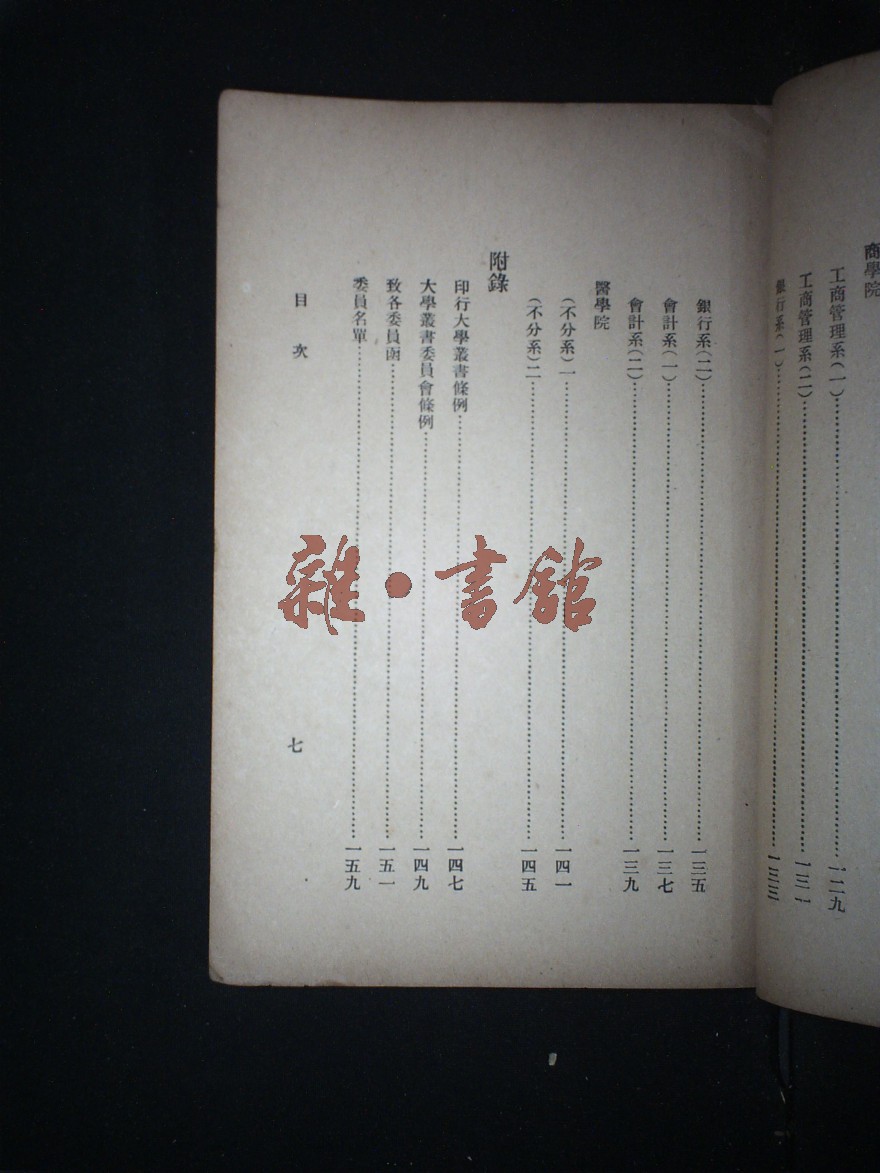 商學院
工商管理系(一)……一二九
工商管理系(二)……一三一
銀行系(一)……一三三
銀行系(二)……一三五
會計系(一)……一三七
會計系(二)……一三九
醫學院
(不分系)一……一四一
(不分系)二……一四五
附錄
印行大學叢書條例……一四七
大學叢書委員會條例……一四九
致各委員函……一五一
委員名單……一五九
目次
七
雜·書館